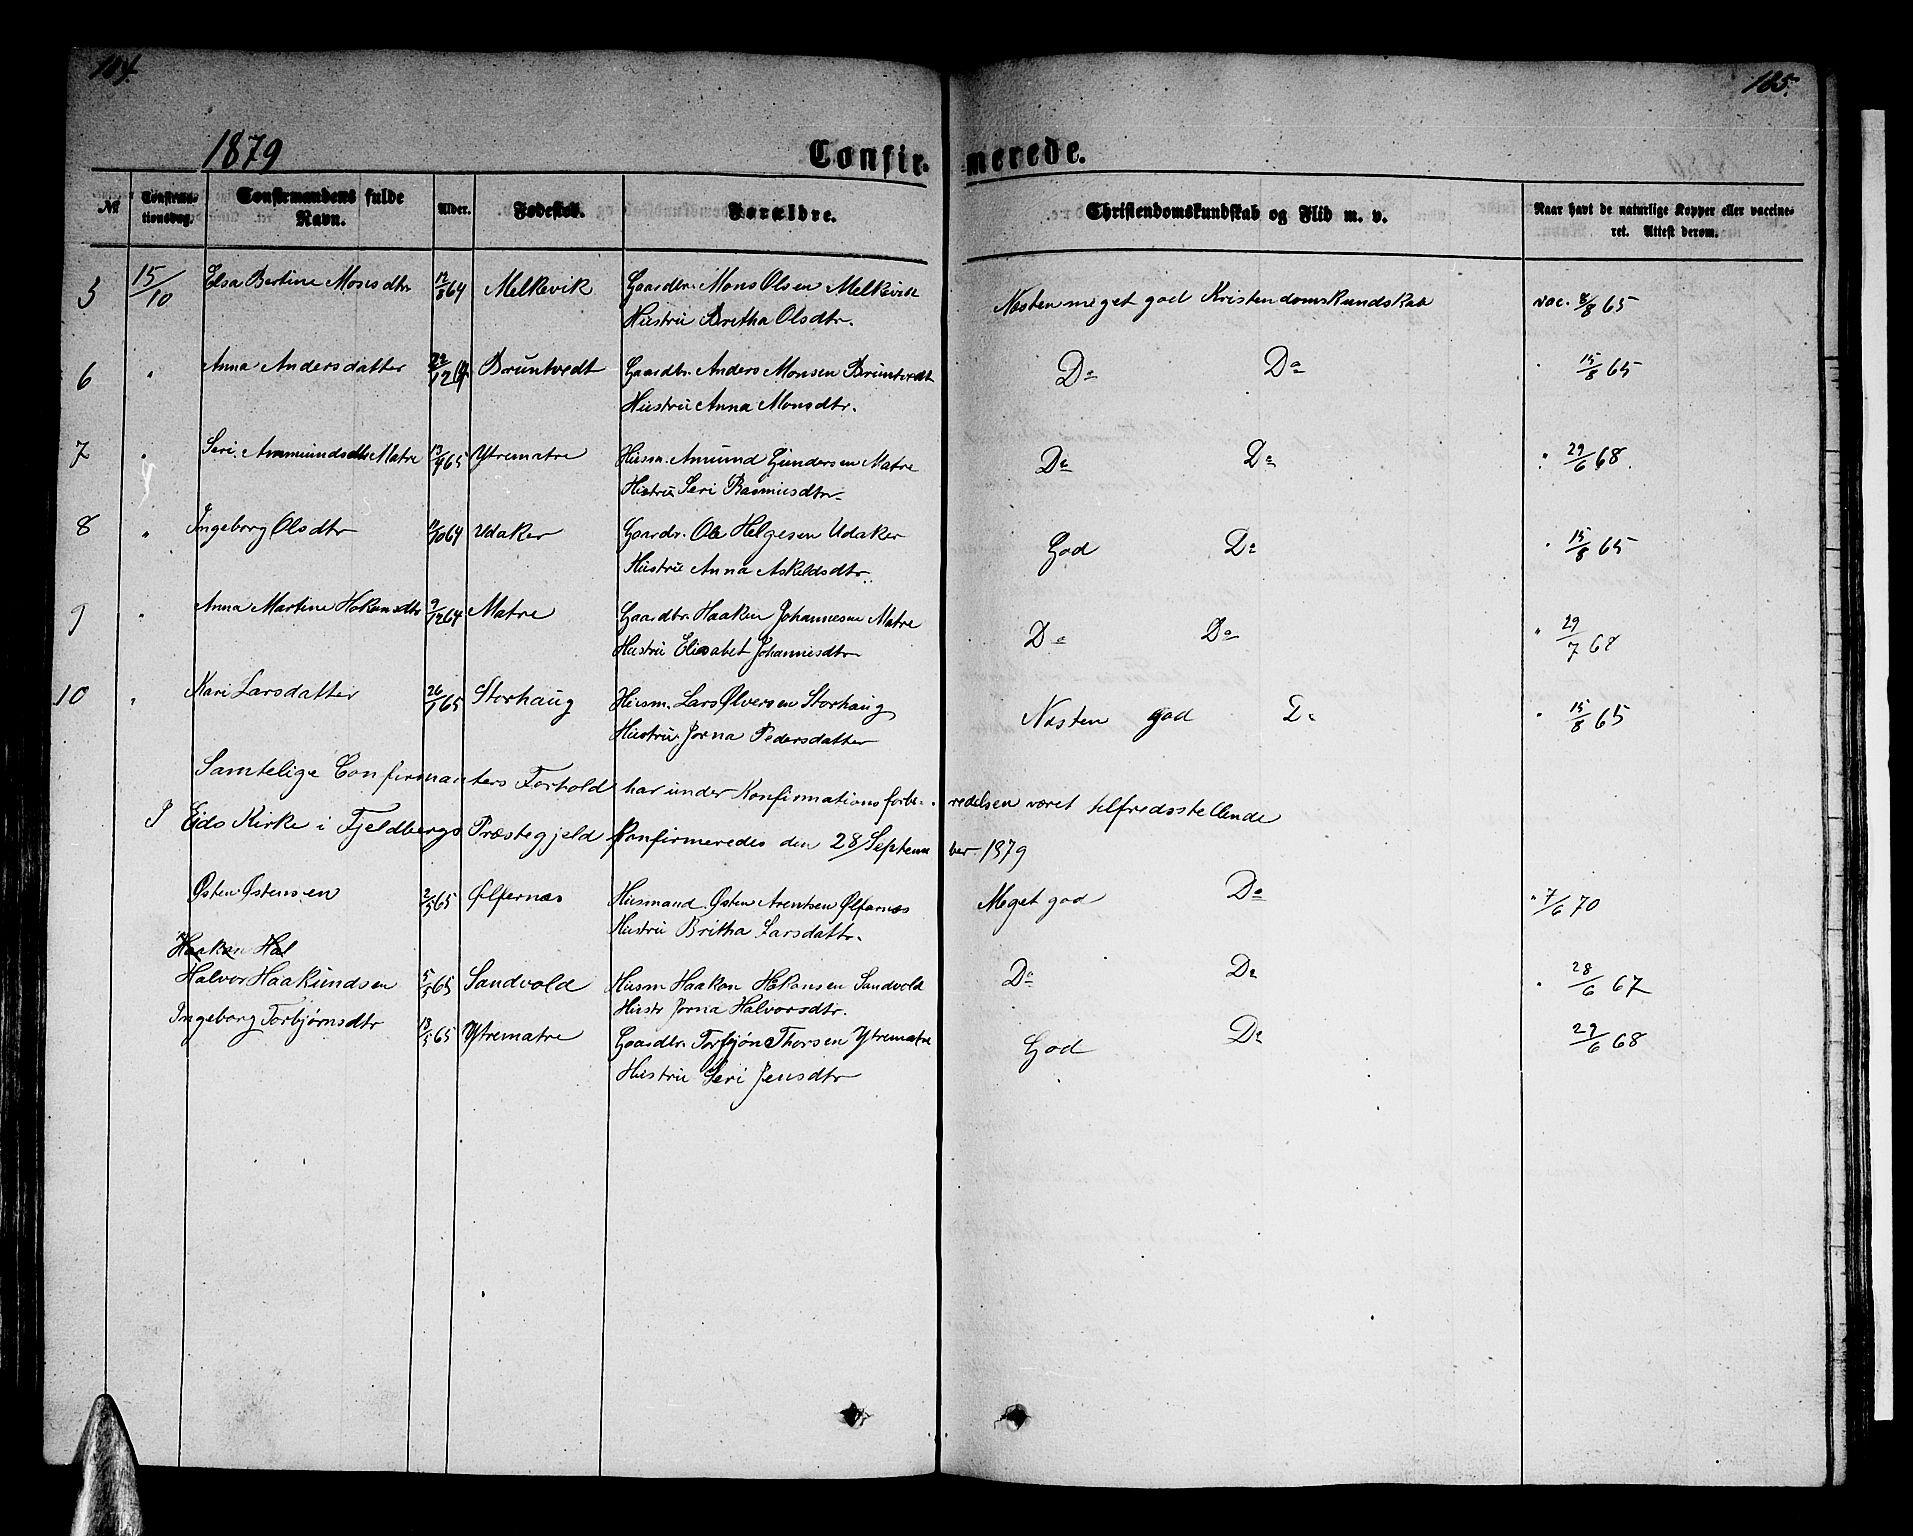 184.
185.
1879
Confir-
merede.
No.
Confirma-
tionsdag.
Confirmandens fulde
Navn.
Alder.
Fødested.
Forældre.
Christendomskundskab og Flid m. v.
Naar havt de naturlige Kopper eller vaccine-
ret. Attest derom.
5 15/10 Elsa Bertine Monsdtr 12/8 64 Melkevik Gaardbr. Mons Olsen Melkevik Næsten meget god Kristendomskundskab vac. 8/8 65
Hustru Britha Olsdtr.
6 " Anna Andersdatter 22/12 64 Bruntvedt Gaardbr. Anders Monsen Bruntvedt Do Do " 15/8 65
Hustru Anna Monsdtr.
7 " Seri Ammundsdtr Matre 13/4 65 Ytrematre Husm. Amund Gundersen Matre Do Do " 29/6 68.
Hustru Seri Rasmusdtr.
8 " Ingeborg Olsdtr 11/10 64 Udaker Gaardr. Ole Helgesen Udaker God Do " 15/8 65
Hustru Anna Askeldsdtr.
9 " Anna Martine Hokansdtr 9/12 64 Matre Gaardbr. Haaken Johannesen Matre Do Do " 29/7 68
Hustru Elisabet Johannesdtr
10 " Kari Larsdatter 26/1 65 Storhaug Husm. Lars Ølversen Storhaug Næsten god Do " 15/8 65
Hustru Jorna Pedersdatter
Samtelige Confirmanters Forhold har under Konfirmationsforbe-redelsen været tilfredsstellende
I Eids Kirke i Fjeldbergs Præstegjeld Konfirmeredes den 28 September 1879
Østen Østensen 2/3 65 Ølfernæs Husmand Østen Arentsen Ølfernæs Meget god Do " 7/6 70
Hustru Britha Larsdattr.
Haakon Hal
Halvor Haakundsen 5/5 65 Sandvold Husm Haakon Hokansen Sandvold Do Do " 28/6 67
Hustr Jorna Halvorsdtr.
Ingeborg Torbjørnsdtr 13/3 65 Ytrematre Gaardbr. Torbjøn Thorsen Ytrematre God Do 29/6 68
Hustru Seri Jensdtr